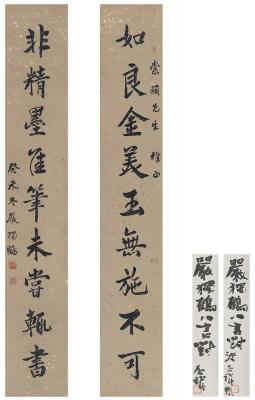 如良金美玉無施不可
崇碩先生 雅正
非精墨佳筆未嘗輒書
癸未冬嚴獨鶴
嚴獨鶴八言對
嚴獨鶴八言對